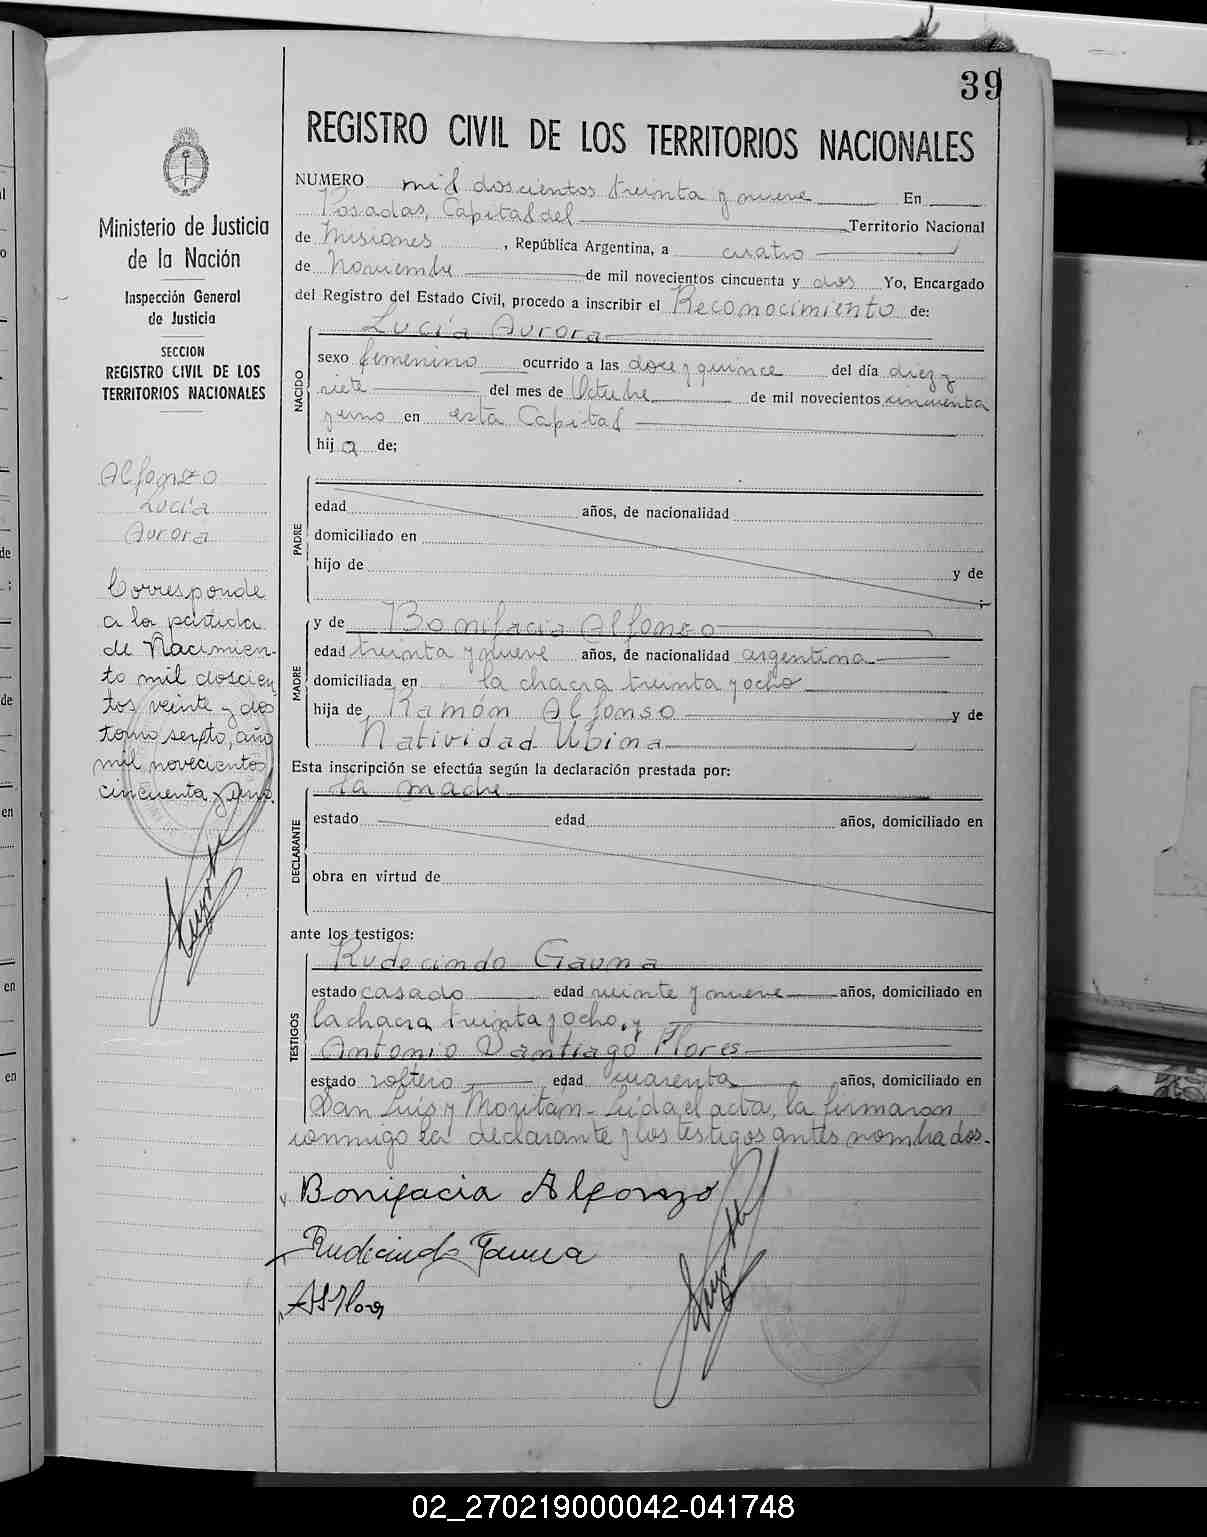 39
REGISTRO CIVIL DE LOS TERRITORIOS NACIONALES
Ministerio de Justicia
de la Nación
Inspección General
de Justicia
SECCION
REGISTRO CIVIL DE LOS
TERRITORIOS NACIONALES
Alfonzo
Lucía
Aurora
Corresponde
a la partida
de Nacimien-
to mil doscien
tos veinte y dos
tomo sexto, año
mil novecientos
cincuenta y uno.
NUMERO mil doscientos treinta y nueve En
Posadas, Capital del Territorio Nacional
de Misiones, República Argentina, a cuatro
de Noviembre de mil novecientos cincuenta y dos Yo, Encargado
del Registro del Estado Civil, procedo a inscribir el Reconocimiento de:
Lucía Aurora
NACIDO
sexo femenino ocurrido a las doce y quince del día diez y
siete del mes de Octubre de mil novecientos cincuenta
y uno en esta Capital
hija de;
PADRE
edad años, de nacionalidad
domiciliado en
hijo de y de
MADRE
y de Bonifacia Alfonzo
edad treinta y nueve años, de nacionalidad argentina
domiciliada en la chacra treinta y ocho
hija de Ramón Alfonso y de
Natividad Ubina
Esta inscripción se efectúa según la declaración prestada por:
la madre
DECLARANTE
estado edad años, domiciliado en
obra en virtud de
ante los testigos:
TESTIGOS
Rudecindo Gauna
estado casado edad veinte y nueve años, domiciliado en
la chacra treinta y ocho, y
Antonio Santiago Flores
estado soltero edad cuarenta años, domiciliado en
San Luis y Moritán - Leída el acta, la firmaron
conmigo la declarante y los testigos antes nombrados.
Bonifacia Alfonzo
Rudecindo Gauna
AS Flores
02_270219000042-041748